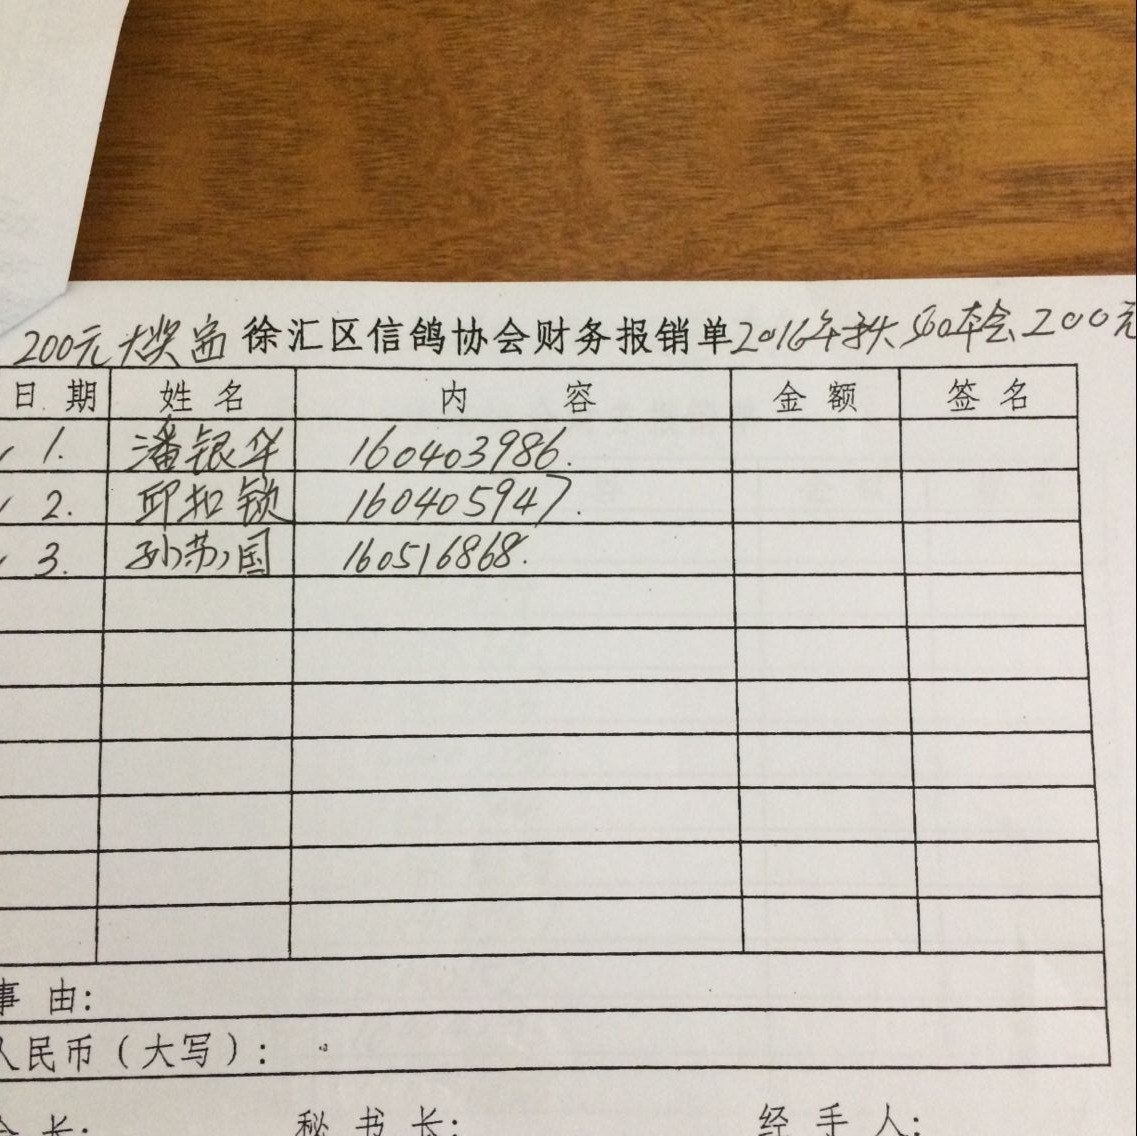 200元大奖 徐汇区信鸽协会财务报销单 2016年秋500本会200元
日期 姓名 内容 金额 签名
1. 潘银华 160403986.
2. 邱扣锁 160405947.
3. 孙苏国 160516868.
事由:
人民币(大写):
会长: 秘书长: 经手人: